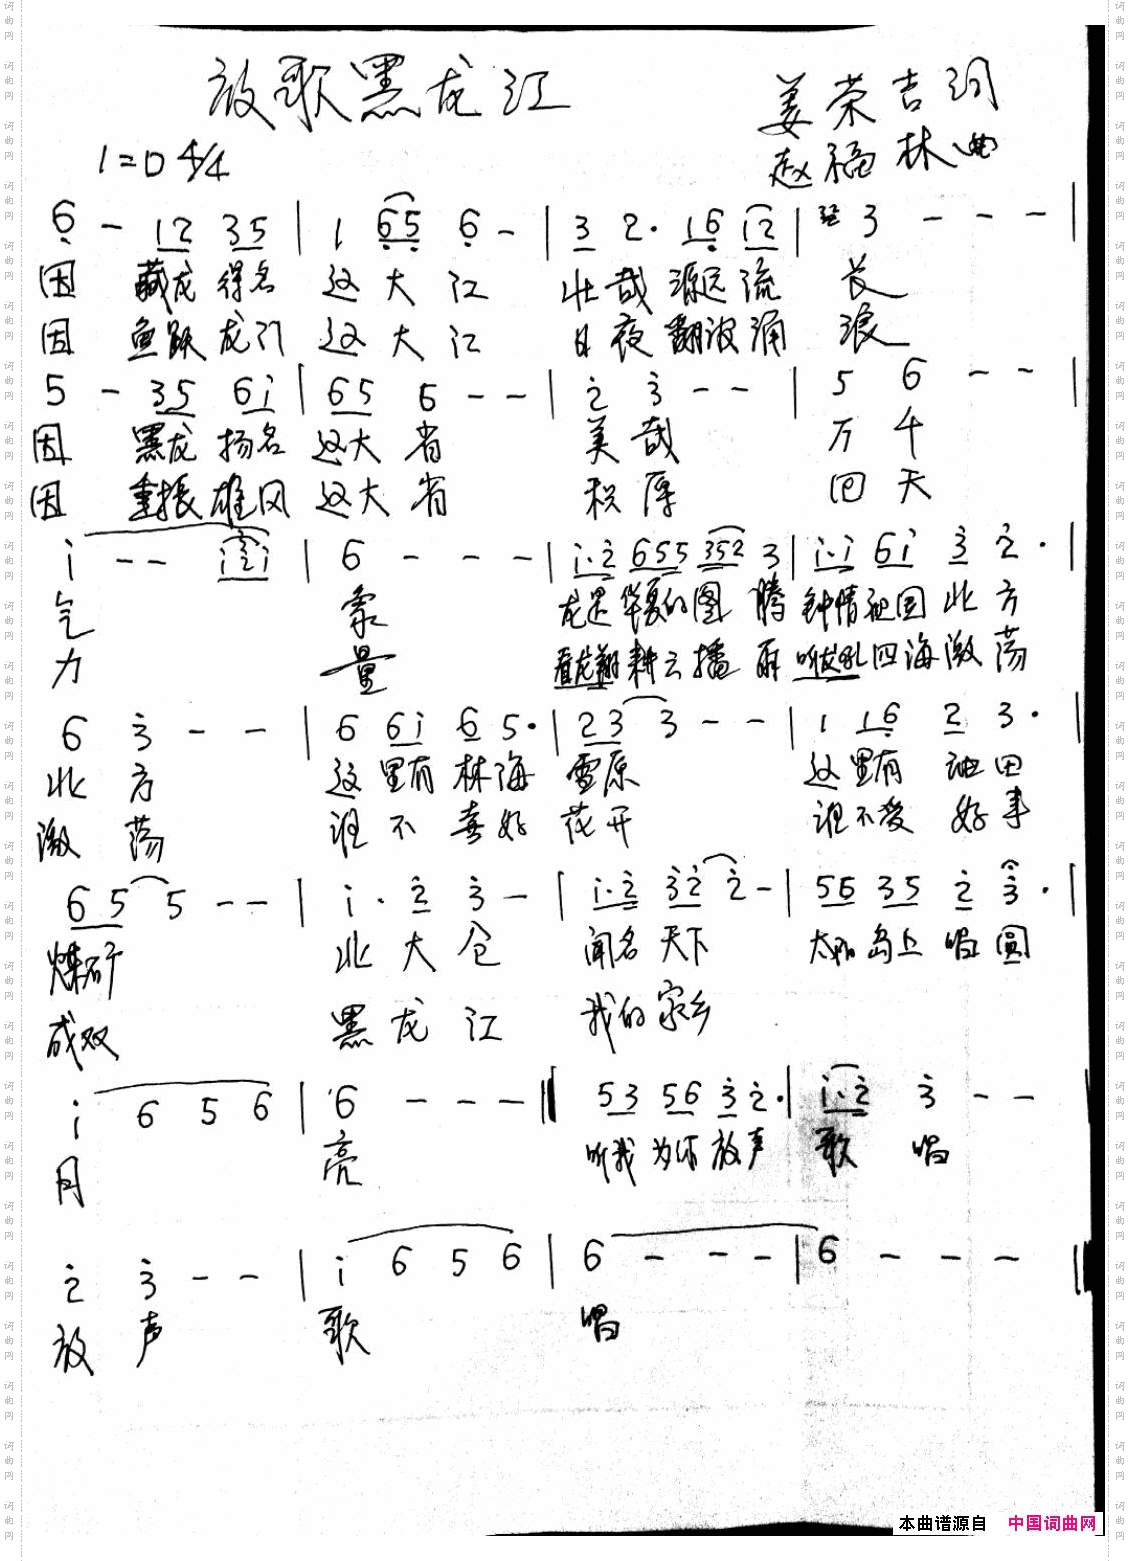 放歌黑龙江
姜荣吉词
1=D 4/4
赵福林曲
6 - 12 35 | 1 65 6 - | 3 2· 16 12 | 3 - - - |
因 藏龙得名 这大江 壮哉源远流 长
因 鱼跃龙门 这大江 日夜翻波涌 浪
5 - 35 6i | 65 6 - - | 2 3 - - | 5 6 - - |
因 黑龙扬名 这大省 美哉 万千
因 重振雄风 这大省 积厚 回天
i - - i2i | 6 - - - | i·2 655 352 3 | i·i 6i 3 2· |
气 象 龙是华夏的图腾 钟情祖国北方
力 量 看龙翔耕云播雨 听龙吼四海激荡
6 3 - - | 6 6i 6 5· | 23 3 - - | 1 16 2 3· |
北方 这里有林海 雪原 这里有油田
激荡 谁不喜好 花开 谁不爱好事
65 5 - - | i· 2 3 - | i·2 32 2 - | 56 35 2 3· |
煤矿 北大仓 闻名天下 太阳岛上唱圆
成双 黑龙江 我的家乡
i 6 5 6 | 6 - - - || 53 56 3 2· | i·2 3 - - |
月 亮 听我为你放声 歌唱
2 3 - - | i 6 5 6 | 6 - - - | 6 - - - ||
放声 歌 唱
本曲谱源自 中国词曲网
词曲网